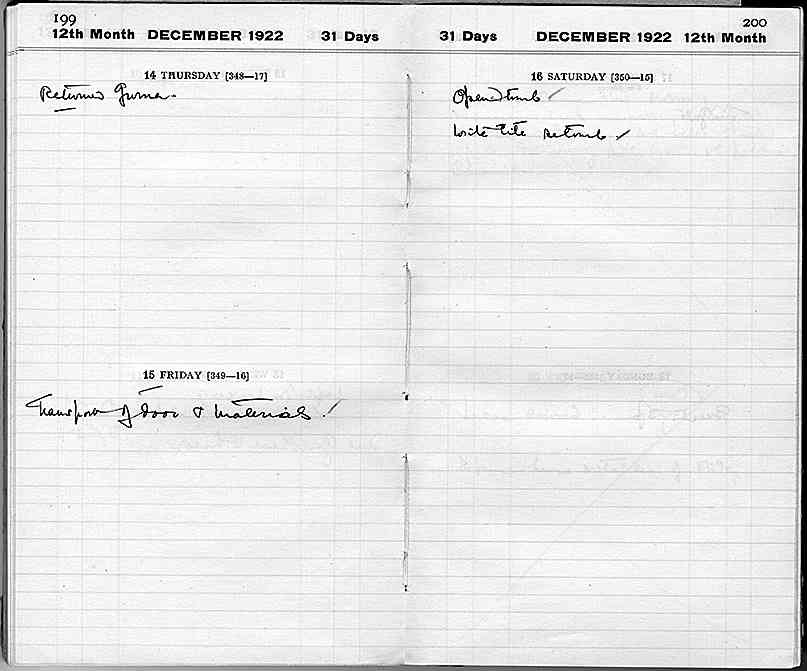 199
12th Month DECEMBER 1922 31 Days
14 THURSDAY [348—17]
Returned Gurna.
15 FRIDAY [349—16]
Transport of door & materials.
200
31 Days DECEMBER 1922 12th Month
16 SATURDAY [350—15]
Opened tomb
Write Lite re tomb